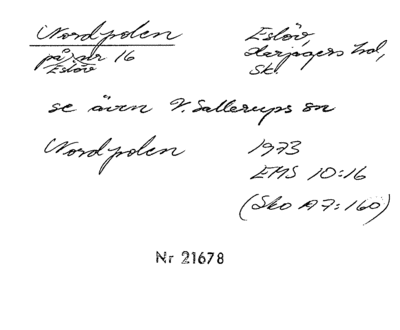 Nordpolen
på nr 16
Eslöv
Eslöv,
Harjagers hd,
Sk.
se även V. Sallerups sn
Nordpolen
1973
EMS 10:16
(Sko A7:160)
Nr 21678